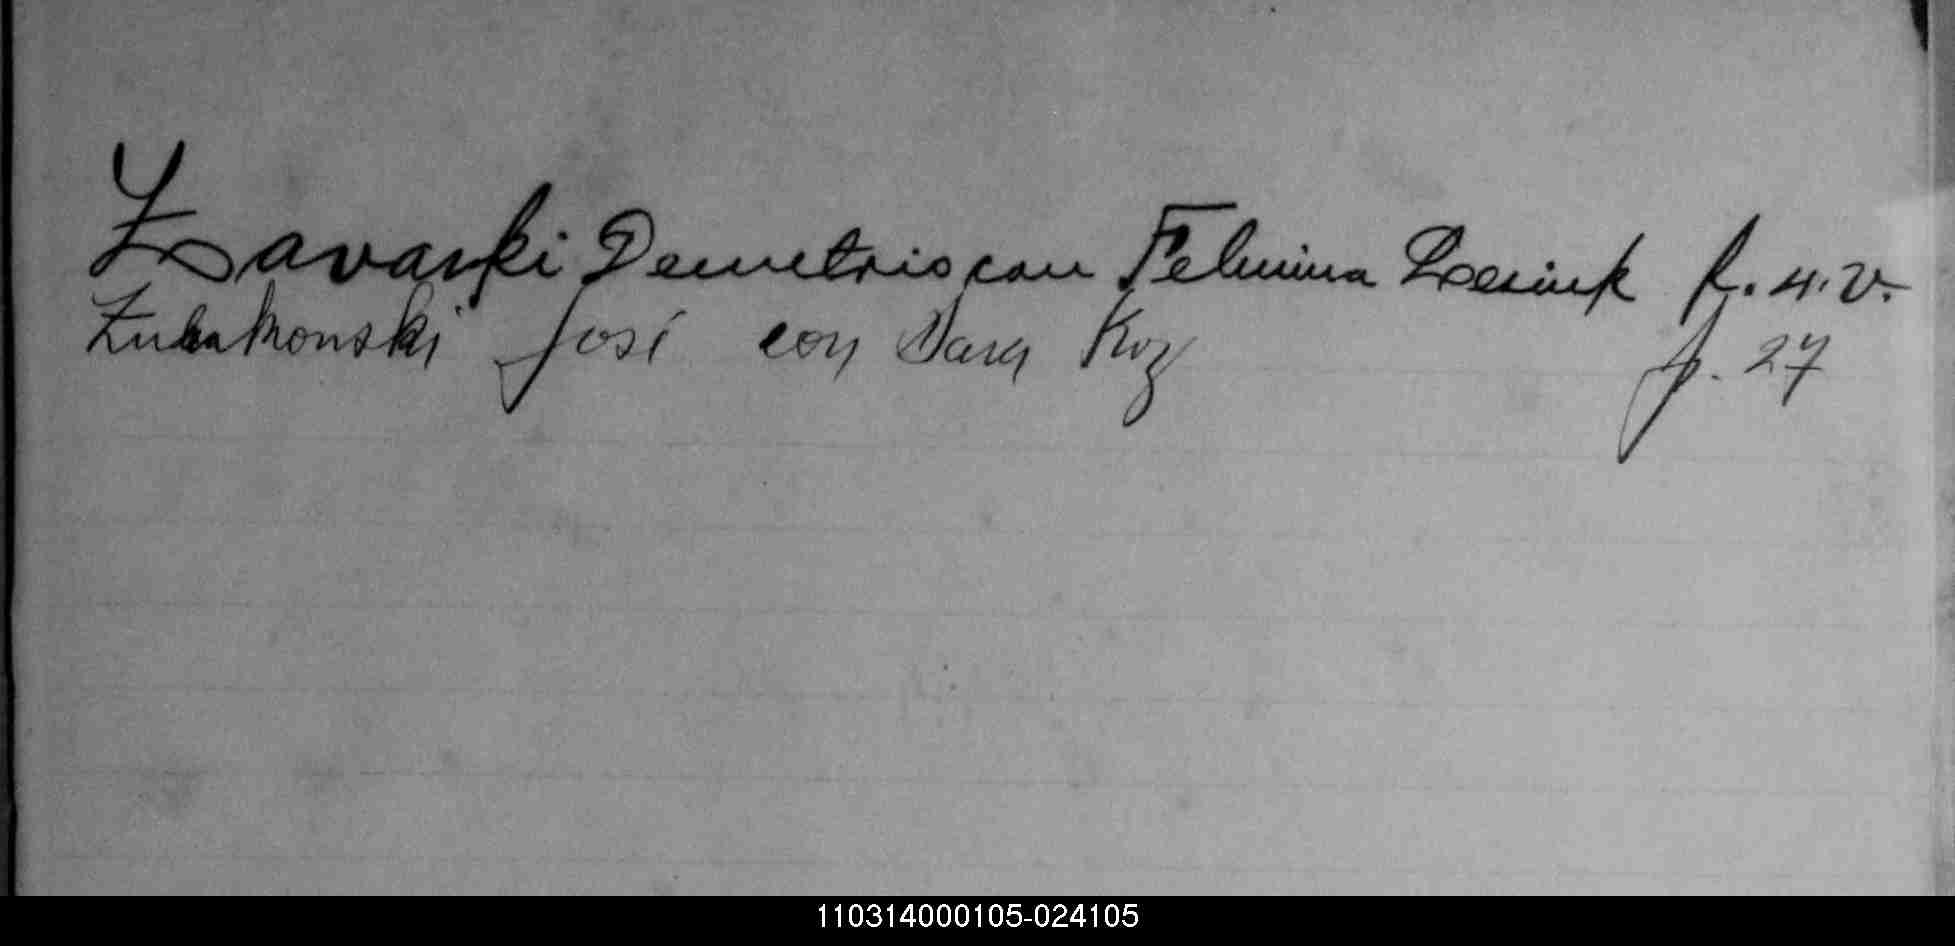 Zavaski Demetrio con Felmina Lesiuk f. 4. v.
Zubakonski José con Sara Koz f. 27
110314000105-024105